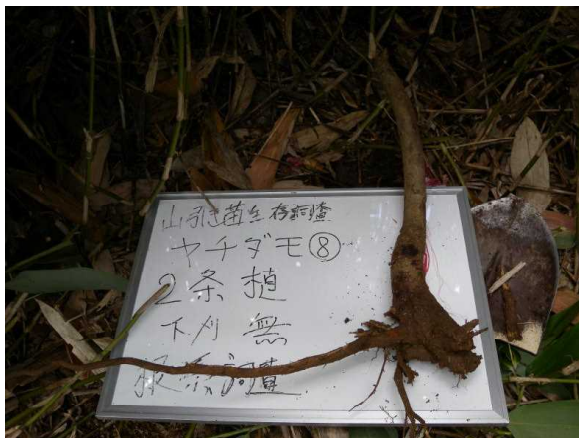 山引き苗生存調査
ヤチダモ⑧
2条植
下刈 無
根系調査